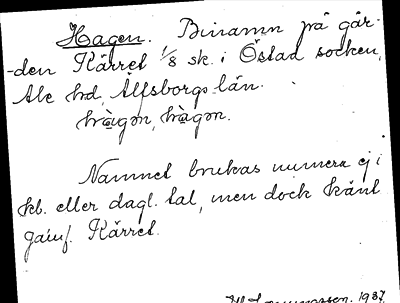 Hagen. Binamn på går-
-den Kärret 1/8 sk. i Östad socken,
Ale hd, Älfsborgs län.
hàgən, hàgən.
Namnet brukas numera ej i
kb. eller dagl. tal, men dock känt
jämf. Kärret.
1937